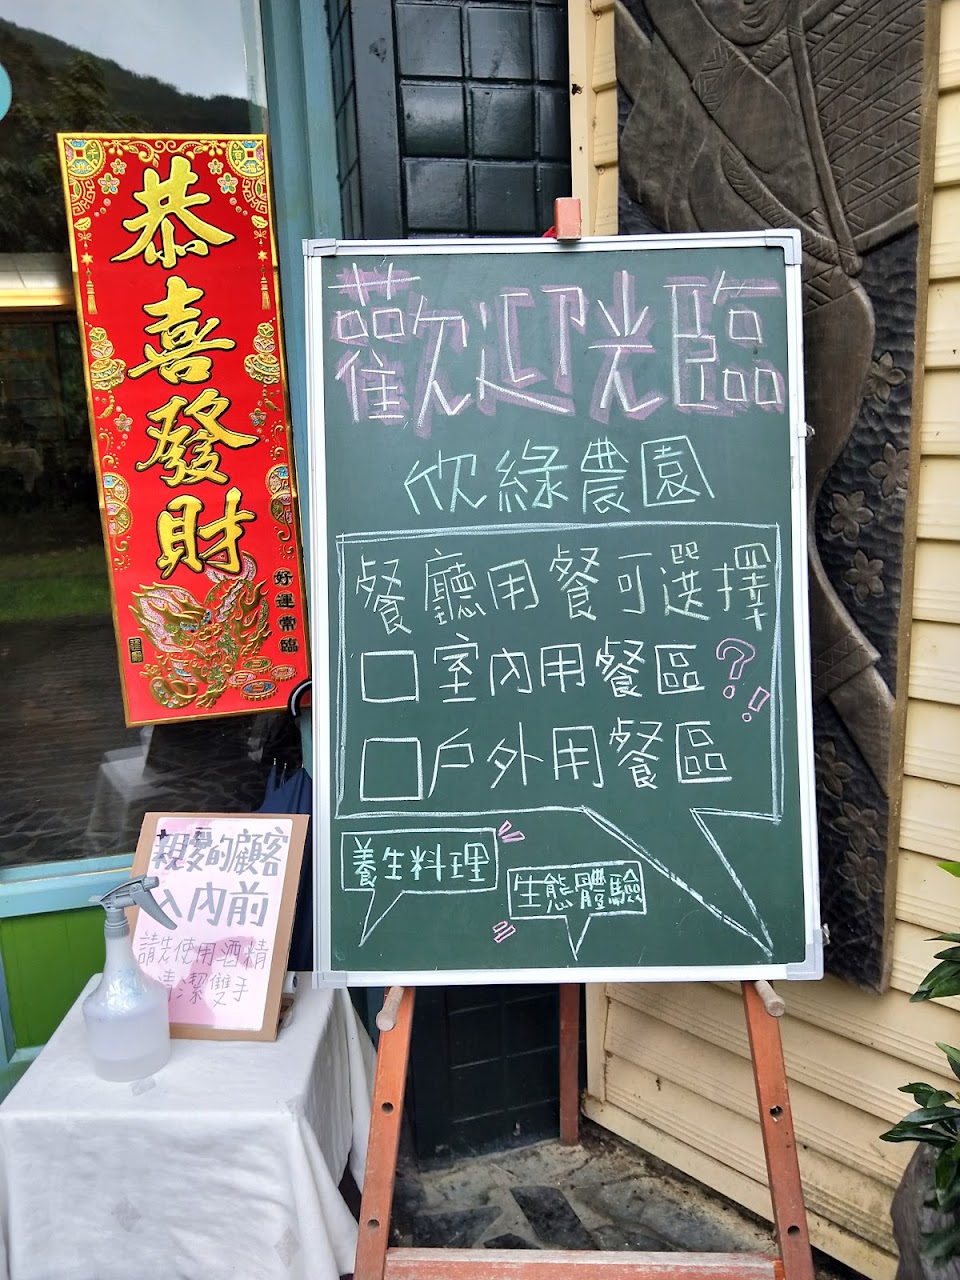 恭喜發財
好運常臨
歡迎光臨
欣綠農園
餐廳用餐可選擇
□室內用餐區?!!
□戶外用餐區
養生料理
生態體驗
親愛的顧客
入內前
請先使用酒精
清潔雙手